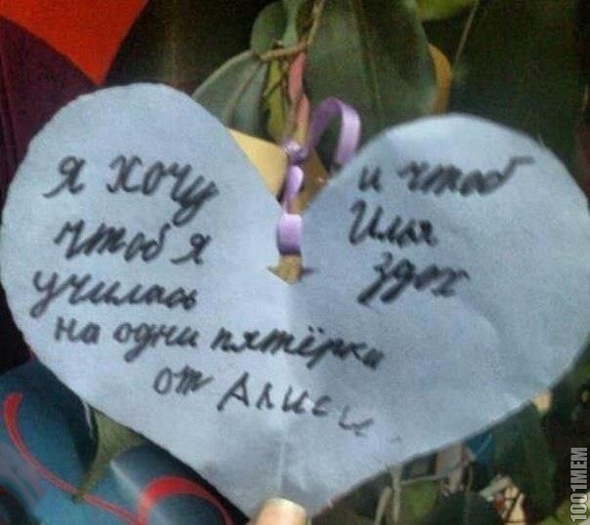 я хочу
чтоб я
училась
на одни пятёрки
от Алисы
и чтоб
Илья
здох
1001MEM